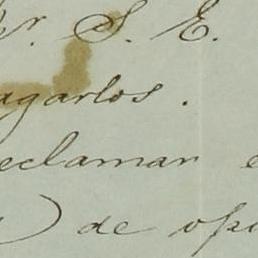 r. S. E.
agarlos.
eclamar e
) de opi